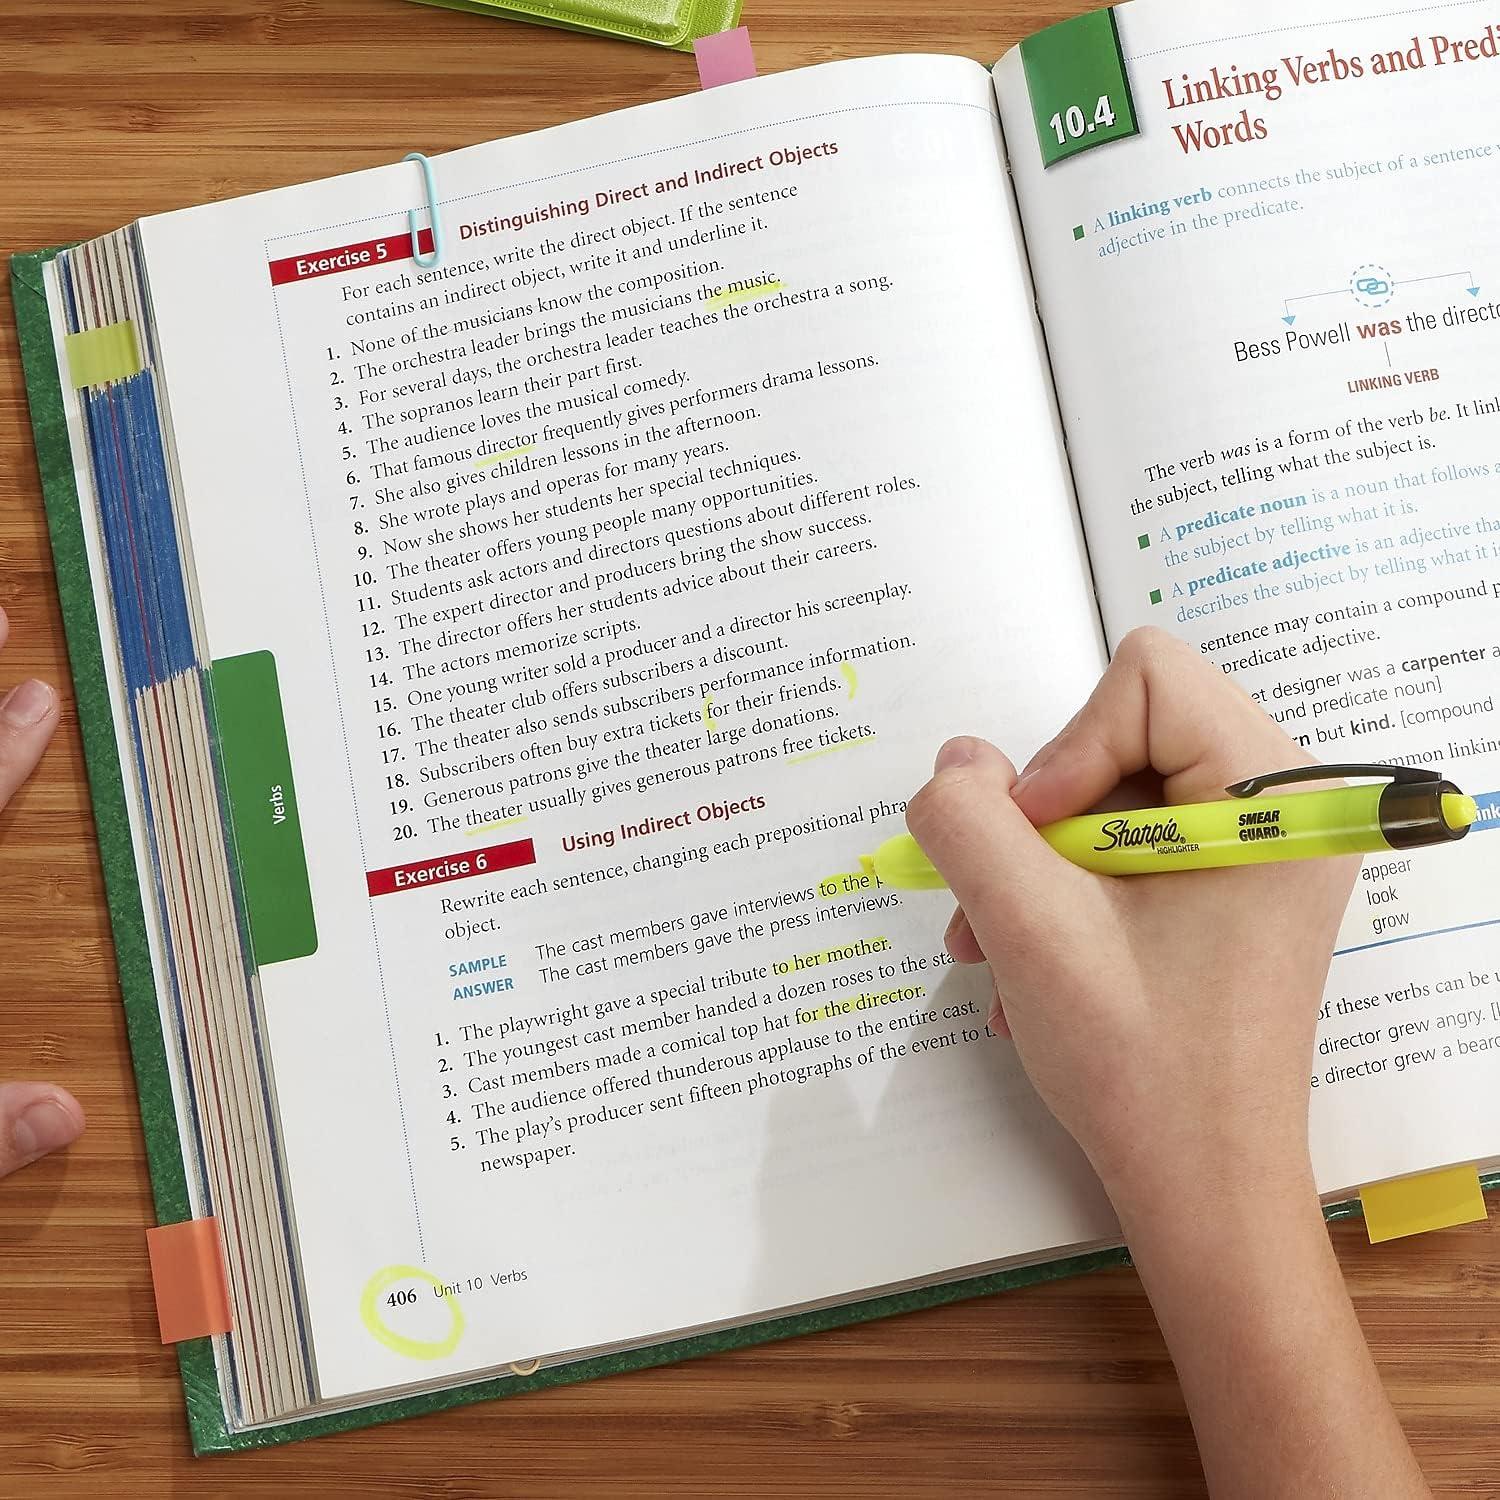 Exercise 5 Distinguishing Direct and Indirect Objects
For each sentence, write the direct object. If the sentence
contains an indirect object, write it and underline it.
1. None of the musicians know the composition.
2. The orchestra leader brings the musicians the music.
3. For several days, the orchestra leader teaches the orchestra a song.
4. The sopranos learn their part first.
5. The audience loves the musical comedy.
6. That famous director frequently gives performers drama lessons.
7. She also gives children lessons in the afternoon.
8. She wrote plays and operas for many years.
9. Now she shows her students her special techniques.
10. The theater offers young people many opportunities.
11. Students ask actors and directors questions about different roles.
12. The expert director and producers bring the show success.
13. The director offers her students advice about their careers.
14. The actors memorize scripts.
15. One young writer sold a producer and a director his screenplay.
16. The theater club offers subscribers a discount.
17. The theater also sends subscribers performance information.
18. Subscribers often buy extra tickets for their friends.
19. Generous patrons give the theater large donations.
20. The theater usually gives generous patrons free tickets.
Exercise 6 Using Indirect Objects
Rewrite each sentence, changing each prepositional
object.
SAMPLE The cast members gave interviews to the
ANSWER The cast members gave the press interviews.
1. The playwright gave a special tribute to her mother.
2. The youngest cast member handed a dozen roses to the
3. Cast members made a comical top hat for the director.
4. The audience offered thunderous applause to the entire cast.
5. The play's producer sent fifteen photographs of the event to
newspaper.
406 Unit 10 Verbs
Verbs
10.4
Linking Verbs and
Words
A linking verb connects the subject of a sentence
adjective in the predicate.
Bess Powell was the
LINKING VERB
The verb was is a form of the verb be. It
the subject, telling what the subject is.
A predicate noun is a noun that follows
the subject by telling what it is.
A predicate adjective is an adjective
describes the subject by telling what it
sentence may contain a compound
predicate adjective.
designer was a carpenter
predicate noun]
but kind. [compound
appear
look
grow
of these verbs can be
director grew angry.
director grew a
Sharpie
HIGHLIGHTER
SMEAR
GUARD